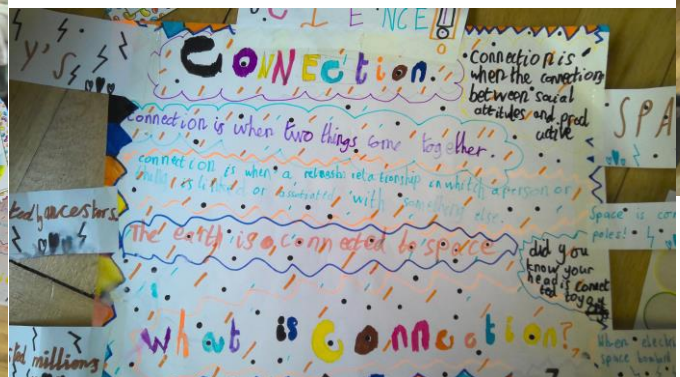 CIENCE!
Y'S
CONNECtion.
Connection is
when the connections
between social
attitudes and pred
uctive
SPA
Connection is when two things come together.
connection is when a relationship in which a person or
is linked or associated with something else.
ted by ancestors.
Space is con
poles!
The earth is a connected to space
did you
know your
head is connect
ted to y
what is Connection?
ted millions
When electr
space